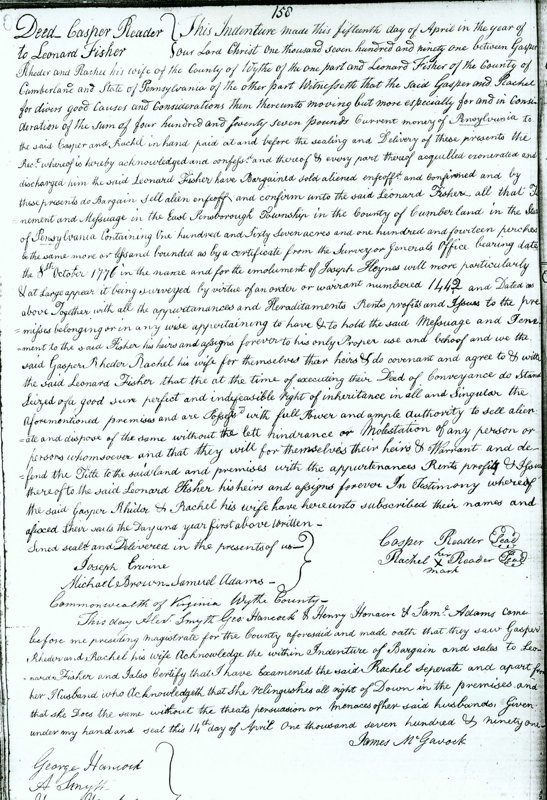 158
Deed Casper Reader
to Leonard Fisher
This Indenture made this fifteenth day of April in the year of
our Lord Christ one thousand seven hundred and ninety one between Gasper
Rheder and Rachel his wife of the County of Wythe of the one part and Leonard Fisher of the County of
Cumberland and State of Pennsylvania of the other part Witnesseth that the said Gasper and Rachel
for divers good Causes and Considerations them thereunto moving but more especially for and in Consi-
deration of the Sum of four hundred and seventy seven pounds Current money of Pensylvania to
the said Casper and Rachel in hand paid at and before the sealing and Delivery of these presents the
Rect. whereof is hereby acknowledged and confesst and thereof & every part thereof acquitted exonerated and
discharged him the said Leonard Fisher have Bargained sold aliened enfeofft and Confirmed and by
these presents do Bargain sell alien enfeoff and confirm unto the said Leonard Fisher all that Te-
nement and Messuage in the East Pensborough Township in the County of Cumberland in the State
of Pensylvania Containing One hundred and Sixty Seven acres and one hundred and fourteen perches
be the same more or less and bounded as by a certificate from the Surveyor Generals Office bearing date
the 8th October 1776 in the name and for the emolument of Joseph Hoynes will more particularly
& at Large appear it being surveyed by virtue of an order or warrant numbered 1442 and Dated as
above Together with all the appurtanances and Heraditaments Rents profits and Issues to the pre-
misses belonging or in any wise appertaining to have & to hold the said Messuage and Tene-
ment to the said Fisher his heirs and assigns forever to his only Proper use and behoof and we the
said Gasper Rheder Rachel his wife for themselves their heirs & do covenant and agree to & with
the said Leonard Fisher that the at the time of executing their Deed of Conveyance do Stand
Seized of a good sure perfect and indefeasible right of inheritance in all and Singular the
Aforementioned premises and are Possess'd with full Power and ample Authority to sell alien-
ate and dispose of the same without the lett hindrance or Molestation of any person or
persons whomsoever and that they will for themselves their heirs & Warrant and de-
fend the Title to the said land and premises with the appurtenances Rents profits & Issues
thereof to the said Leonard Fisher his heirs and assigns forever In Testimony whereof
the said Gasper Rheder & Rachel his wife have hereunto subscribed their names and
affixed their seals the Day and year first above Written
Sined sealt and Delivered in the presents of us
Joseph Ervine
Michael Brown Samuel Adams
Casper Reader Seal
Rachel her X mark Reader Seal
Commonwealth of Virginia Wythe County
This day Alexr Smyth Geo Hancock & Henry Honaire & Saml. Adams came
before me presiding magistrate for the County aforesaid and made oath that they saw Gasper
Rheder and Rachel his wife Acknowledge the within Indenture of Bargain and sales to Leo-
nard Fisher and I also Certify that I have Examened the said Rachel Seperate and apart from
her Husband who Acknowledgeth that She relinguishes all right of Down in the premises and
that she Does the same without the theats persuasion or menaces of her said husbands Given
under my hand and seal this 14th day of April One thousand seven hundred & ninety one
James McGavock
George Hancock
A Smyth